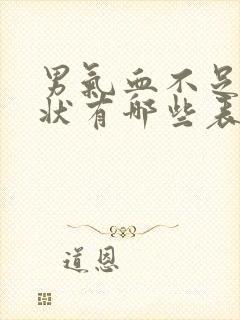 男氣血不足
狀有哪些表
道恩